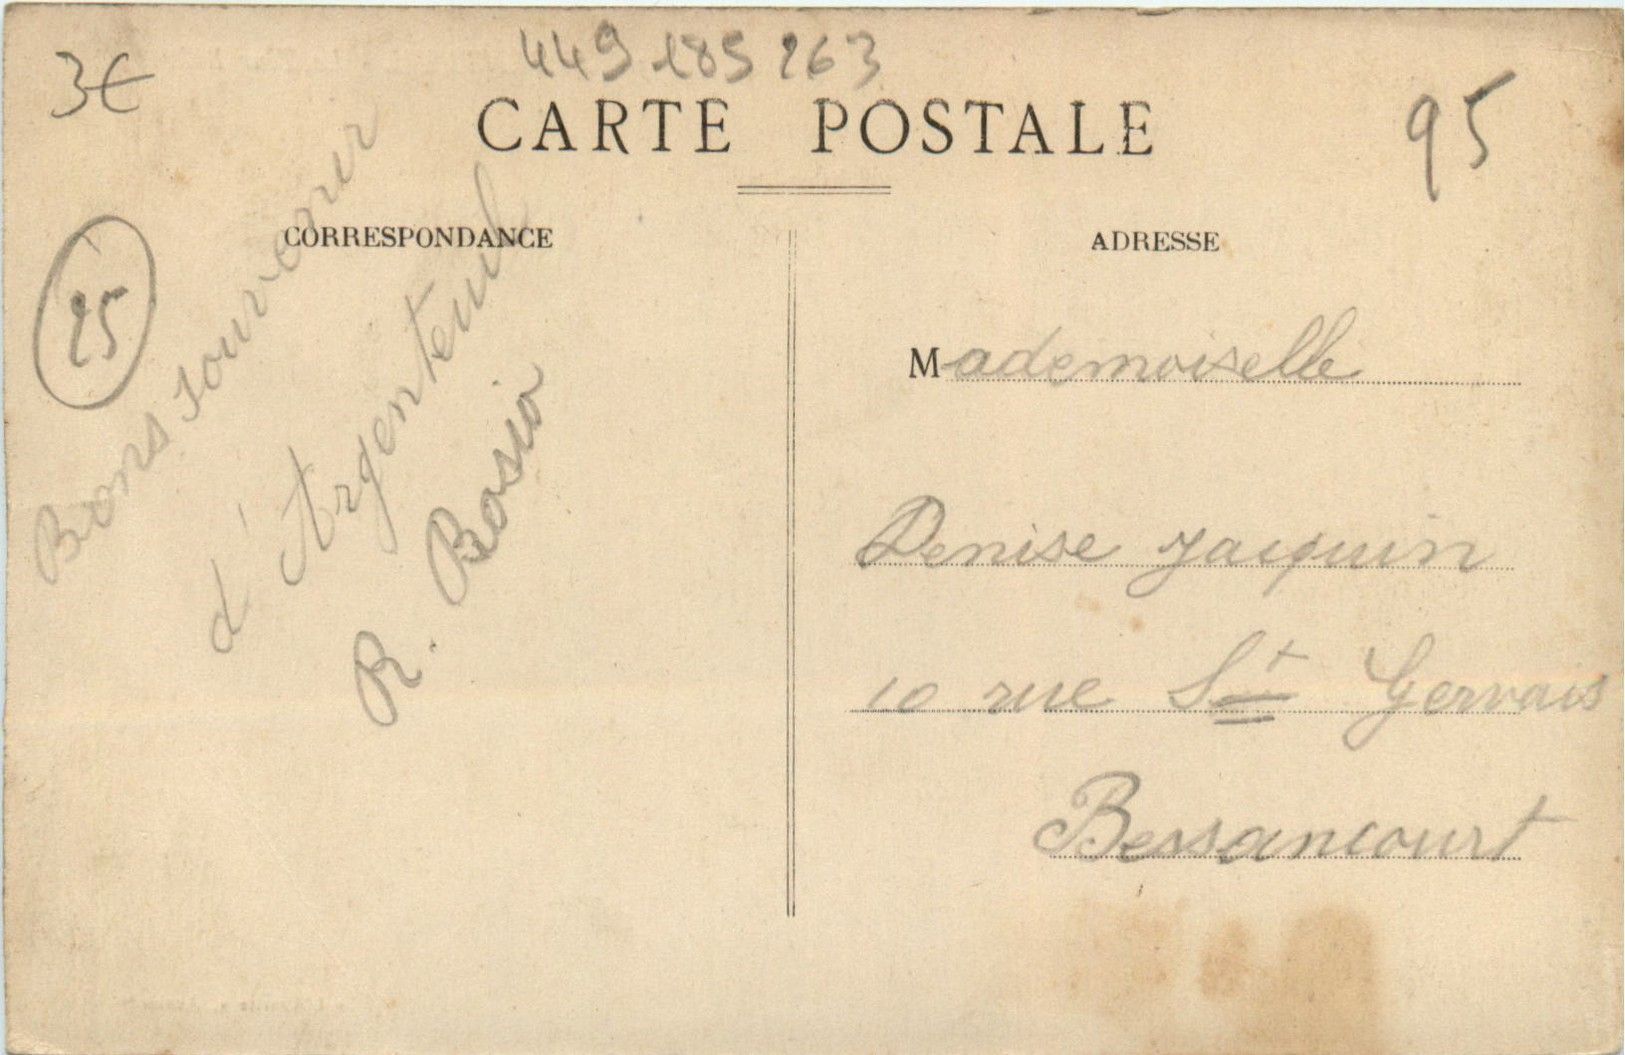 3€
449 185 263
95
CARTE POSTALE
CORRESPONDANCE
ADRESSE
Bons souvenir
d'Argenteuil
R. Bosio
Mademoiselle
Denise Jacquin
10 rue St Gervais
Bessancourt